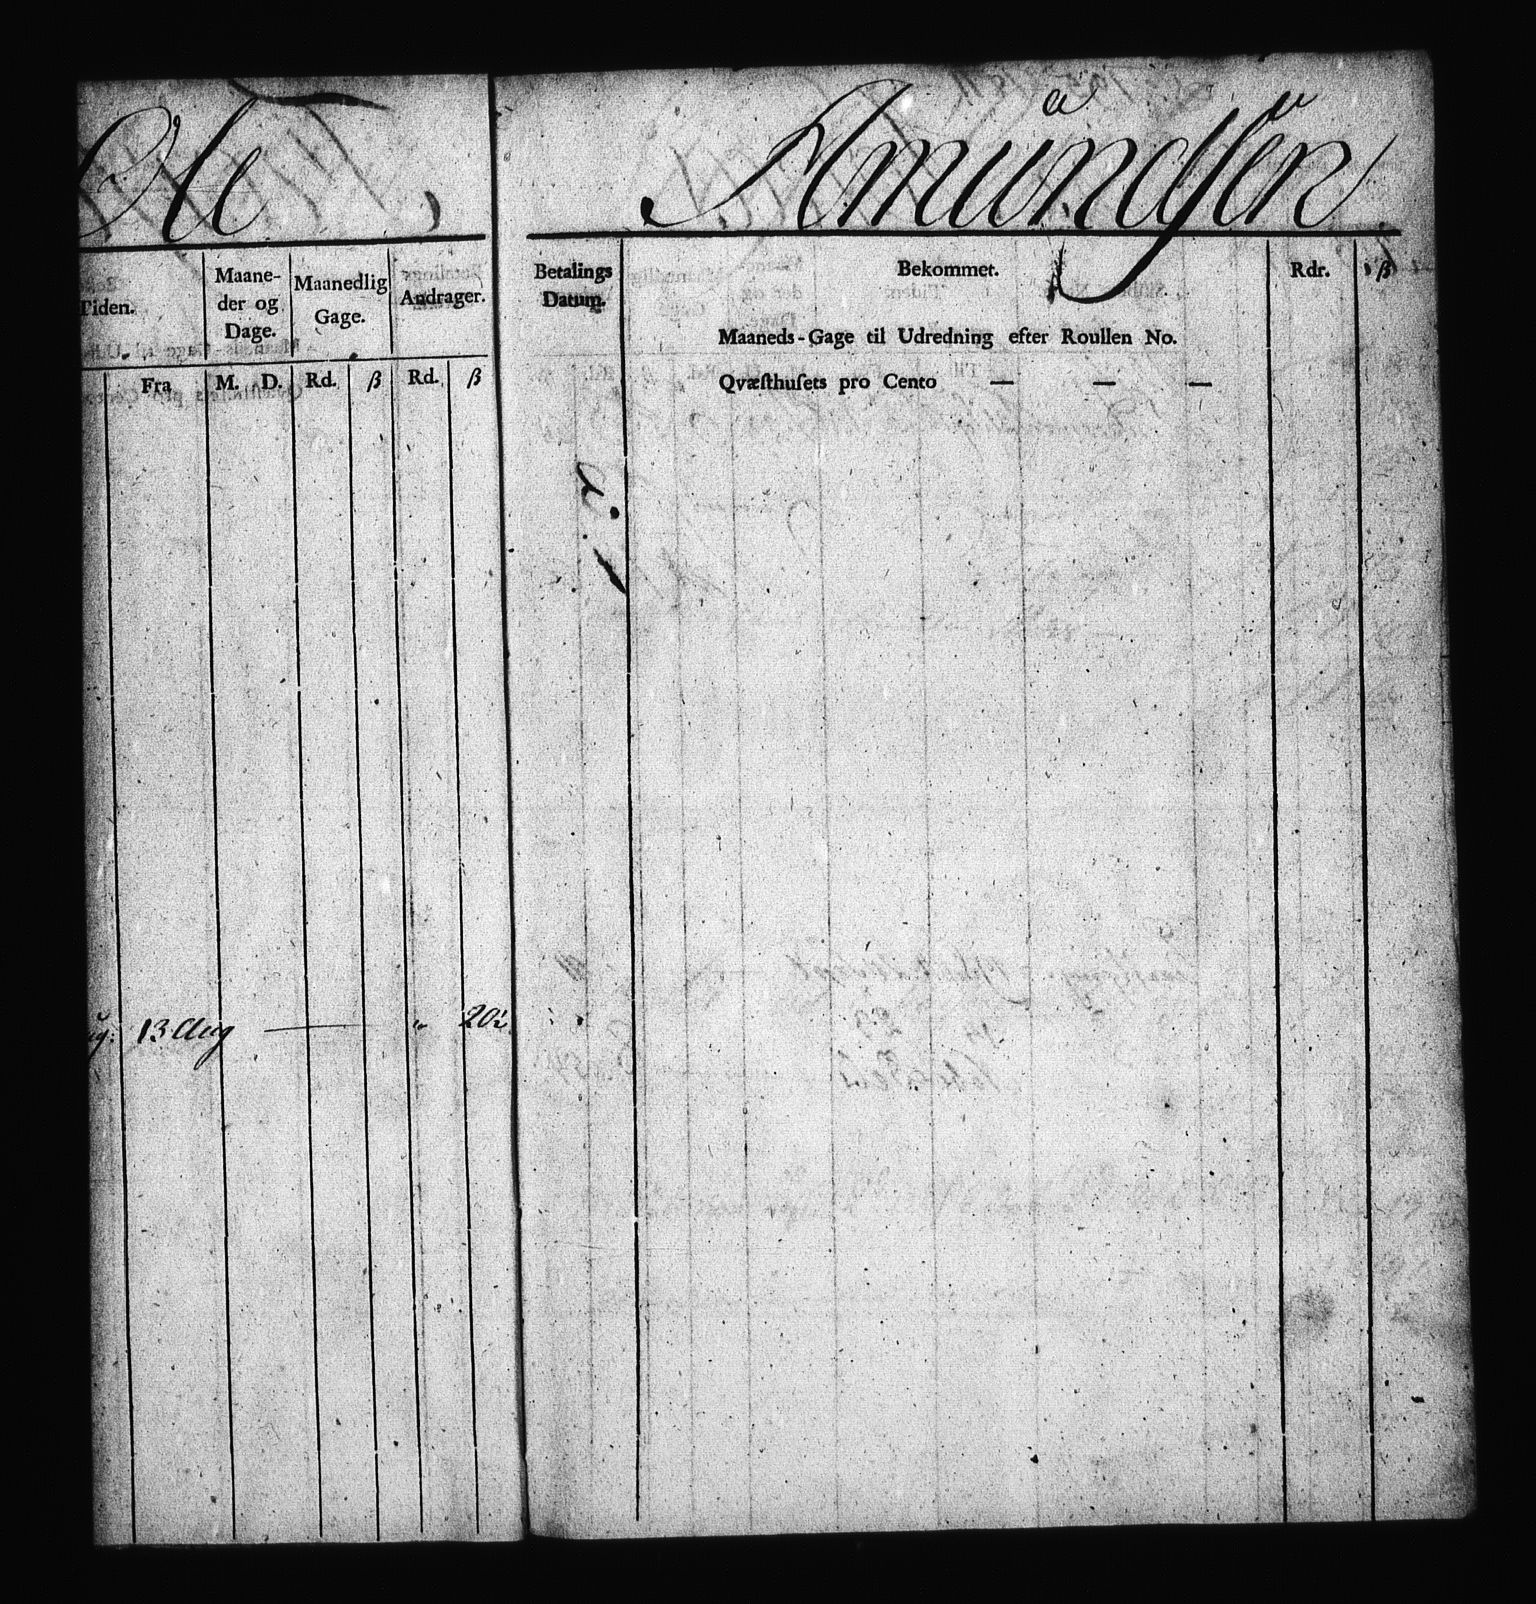 Ole Amundsen
Tiden.
Maane-
der og
Dage.
Maanedlig
Gage.
Andrager.
Fra
M. D.
Rd. ß
Rd. ß
13 Aug — " 20½
Betalings
Datum.
Bekommet.
Rdr. ß
Maaneds-Gage til Udredning efter Roullen No.
Qvæſthuſets pro Cento — — —